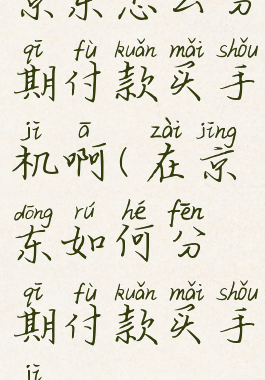 京东怎么分
qī fù kuǎn mǎi shǒu
期付款买手
jī ā zài jīng
机啊(在京
dōng rú hé fēn
东如何分
qī fù kuǎn mǎi shǒu
期付款买手
jī